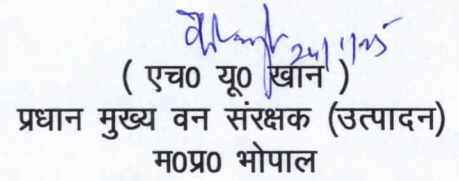 24/1/25
( एच0 यू0 खान )
प्रधान मुख्य वन संरक्षक (उत्पादन)
म0प्र0 भोपाल